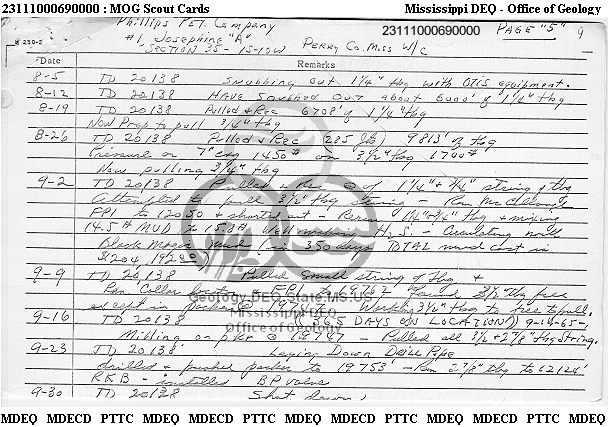 23111000690000 : MOG Scout Cards Mississippi DEQ - Office of Geology
Phillips PET. Company 23111000690000 PAGE "5" 9
M 250-2 #1 Josephine "A"
SECTION 35 - 1S-10W Perry Co. Miss W/C
Date Remarks
8-5 TD 20138 Snubbing out 1 1/4" tbg with OTIS equipment.
8-12 TD 20138 Have snubbed out about 6000' of 1 1/4" tbg
8-19 TD 20138 Pulled & Rec 6708' of 1 1/4" tbg
Now Prep to pull 3/4" tbg
8-26 TD 20138 Pulled & Rec 285 jts 9813' of tbg
Pressure on 7" csg 1450# on 3 1/2" tbg 1700#
Now pulling 3/4" tbg
9-2 TD 20138 Pulled & Rec of 1 1/4" & 3/4" string of tbg
Attempted to pull 3 1/2" tbg string - Ran McCullough
FPI to 12050 & shorted out - 1 1/4" & 3/4" tbg & mixing
14.5# MUD to 15.0# Well making H2S - Circulating now
Black Magic mud in 350 days TOTAL mud cost is
$1,204,192.80
9-9 TD 20138 Pulled small string of tbg &
Ran Collar & FPI to 19762 found 3 1/2" tbg free
except in packer @ 19767 Working 3 1/2" tbg to free & pull.
9-16 TD 20138 (365 DAYS ON LOCATION) 9-14-65-
Milling on pkr @ 19747 - Pulled all 3 1/2 & 2 7/8" tbg string.
9-23 TD 20138 Laying Down Drill Pipe
drilled & pushed packer to 19753' - Ran 2 7/8" tbg to 12124'
RKB - installed BP valve
9-30 TD 20138 Shut down
Geology.DEQ.State.MS.US
Mississippi DEQ
Office of Geology
MDEQ MDECD PTTC MDEQ MDECD PTTC MDEQ MDECD PTTC MDEQ MDECD PTTC MDEQ